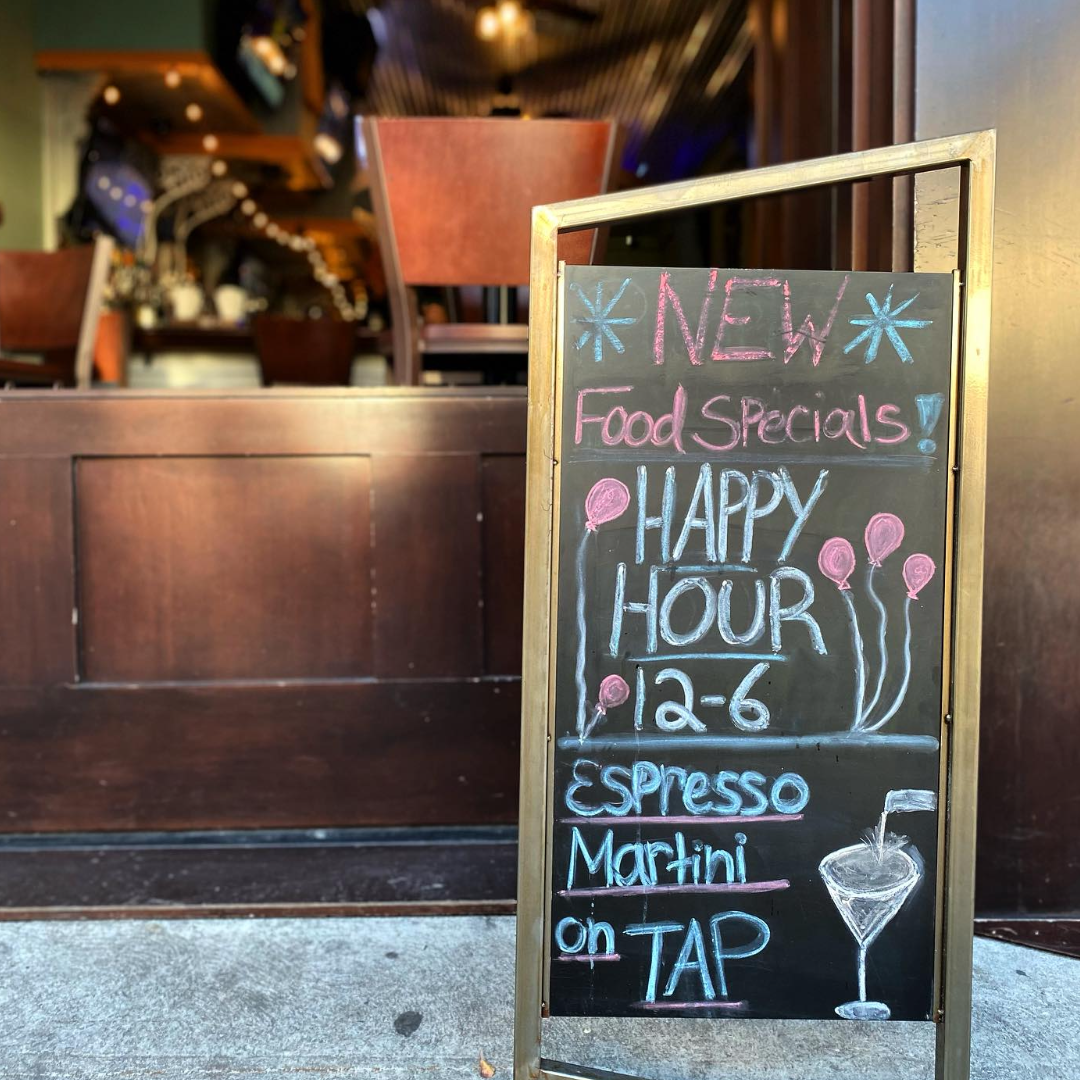 NEW
Food Specials!
HAPPY
HOUR
12-6
Espresso
Martini
on TAP